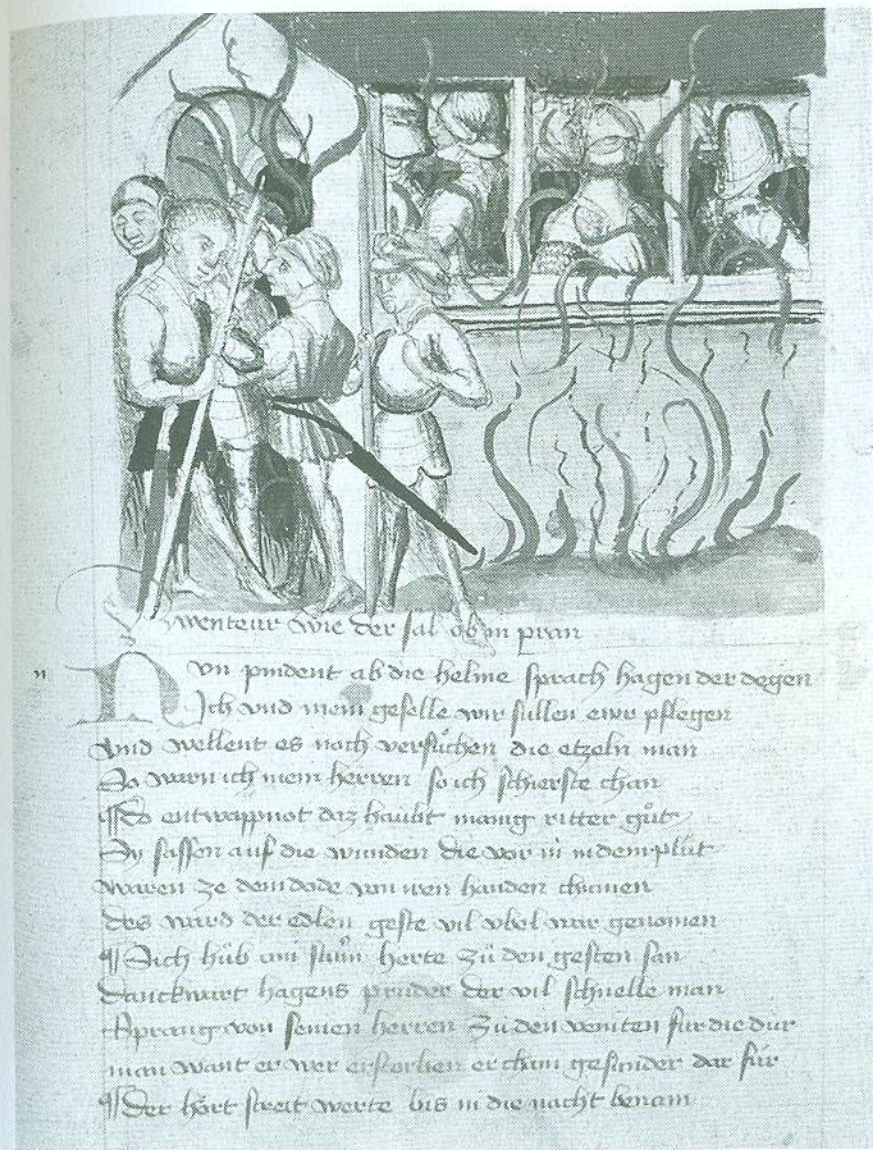 Awenteur wie der sal ob in pran
Nun pindent ab die helme sprach hagen der degen
Ich vnd mein geselle wir sullen ewr pflegen
Vnd wellent es noch versůchen die etzeln man
So warn ich mein herren so ich schierste chan
¶ Do entwappnot daz haubt manig ritter gůt
Sy sassen auf die wunden die vor in in dem plůt
Waren ze dem dode von iren handen chomen
Des ward der edlen geste vil vbel war genomen
¶ Sich hůb ain sturm herte zů den gesten san
Danckwart hagens průder der vil schnelle man
Sprang von seinen herren zů den veinten fur die dur
man want er wer erstorben er cham gesunder dar fůr
¶ Der hört streit werte bis in die nacht benam